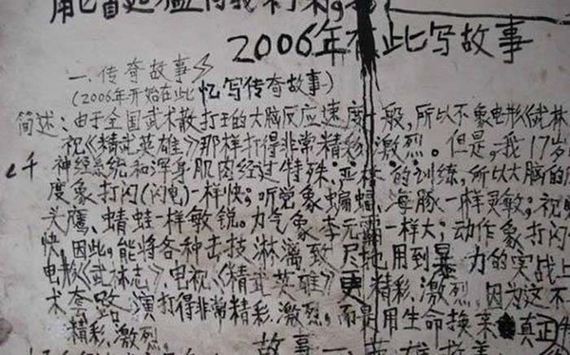 2006年在此写故事
一、传奇故事
(2006年开始在此忆写传奇故事)
简述:由于全国武术散打王的大脑反应速度一般,所以不象电影《武林
视《精武英雄》那样打得非常精彩、激烈。但是,我17岁
神经系统和浑身肌肉经过特殊、严格的训练,所以大脑的
度象打闪(闪电)一样快;听觉象蝙蝠、海豚一样灵敏;视
头鹰、蜻蜓一样敏锐。力气象李元霸一样大;动作象打闪
快,因此,能将各种击技淋漓致尽地用到暴力的实战上
电影《武林志》、电视《精武英雄》更精彩、激烈。因为这不
术套路,演打得非常精彩、激烈。而是用生命换来 真正
精彩、激烈。
故事一